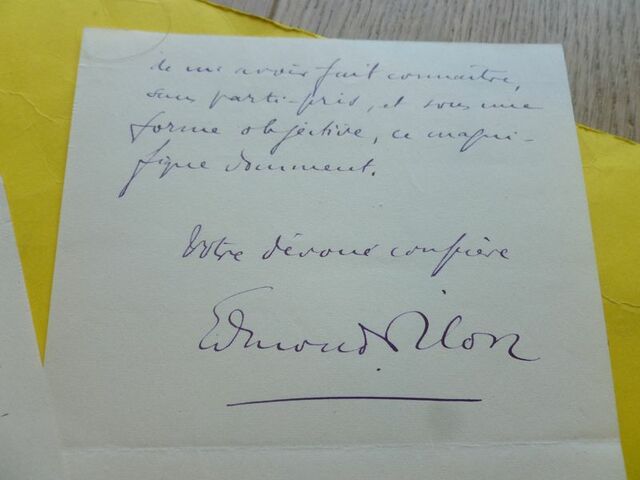 de m'avoir fait connaître,
sans parti-pris, et sous une
forme objective, ce magni-
fique document.
Votre dévoué confrère
Edmond Pilon